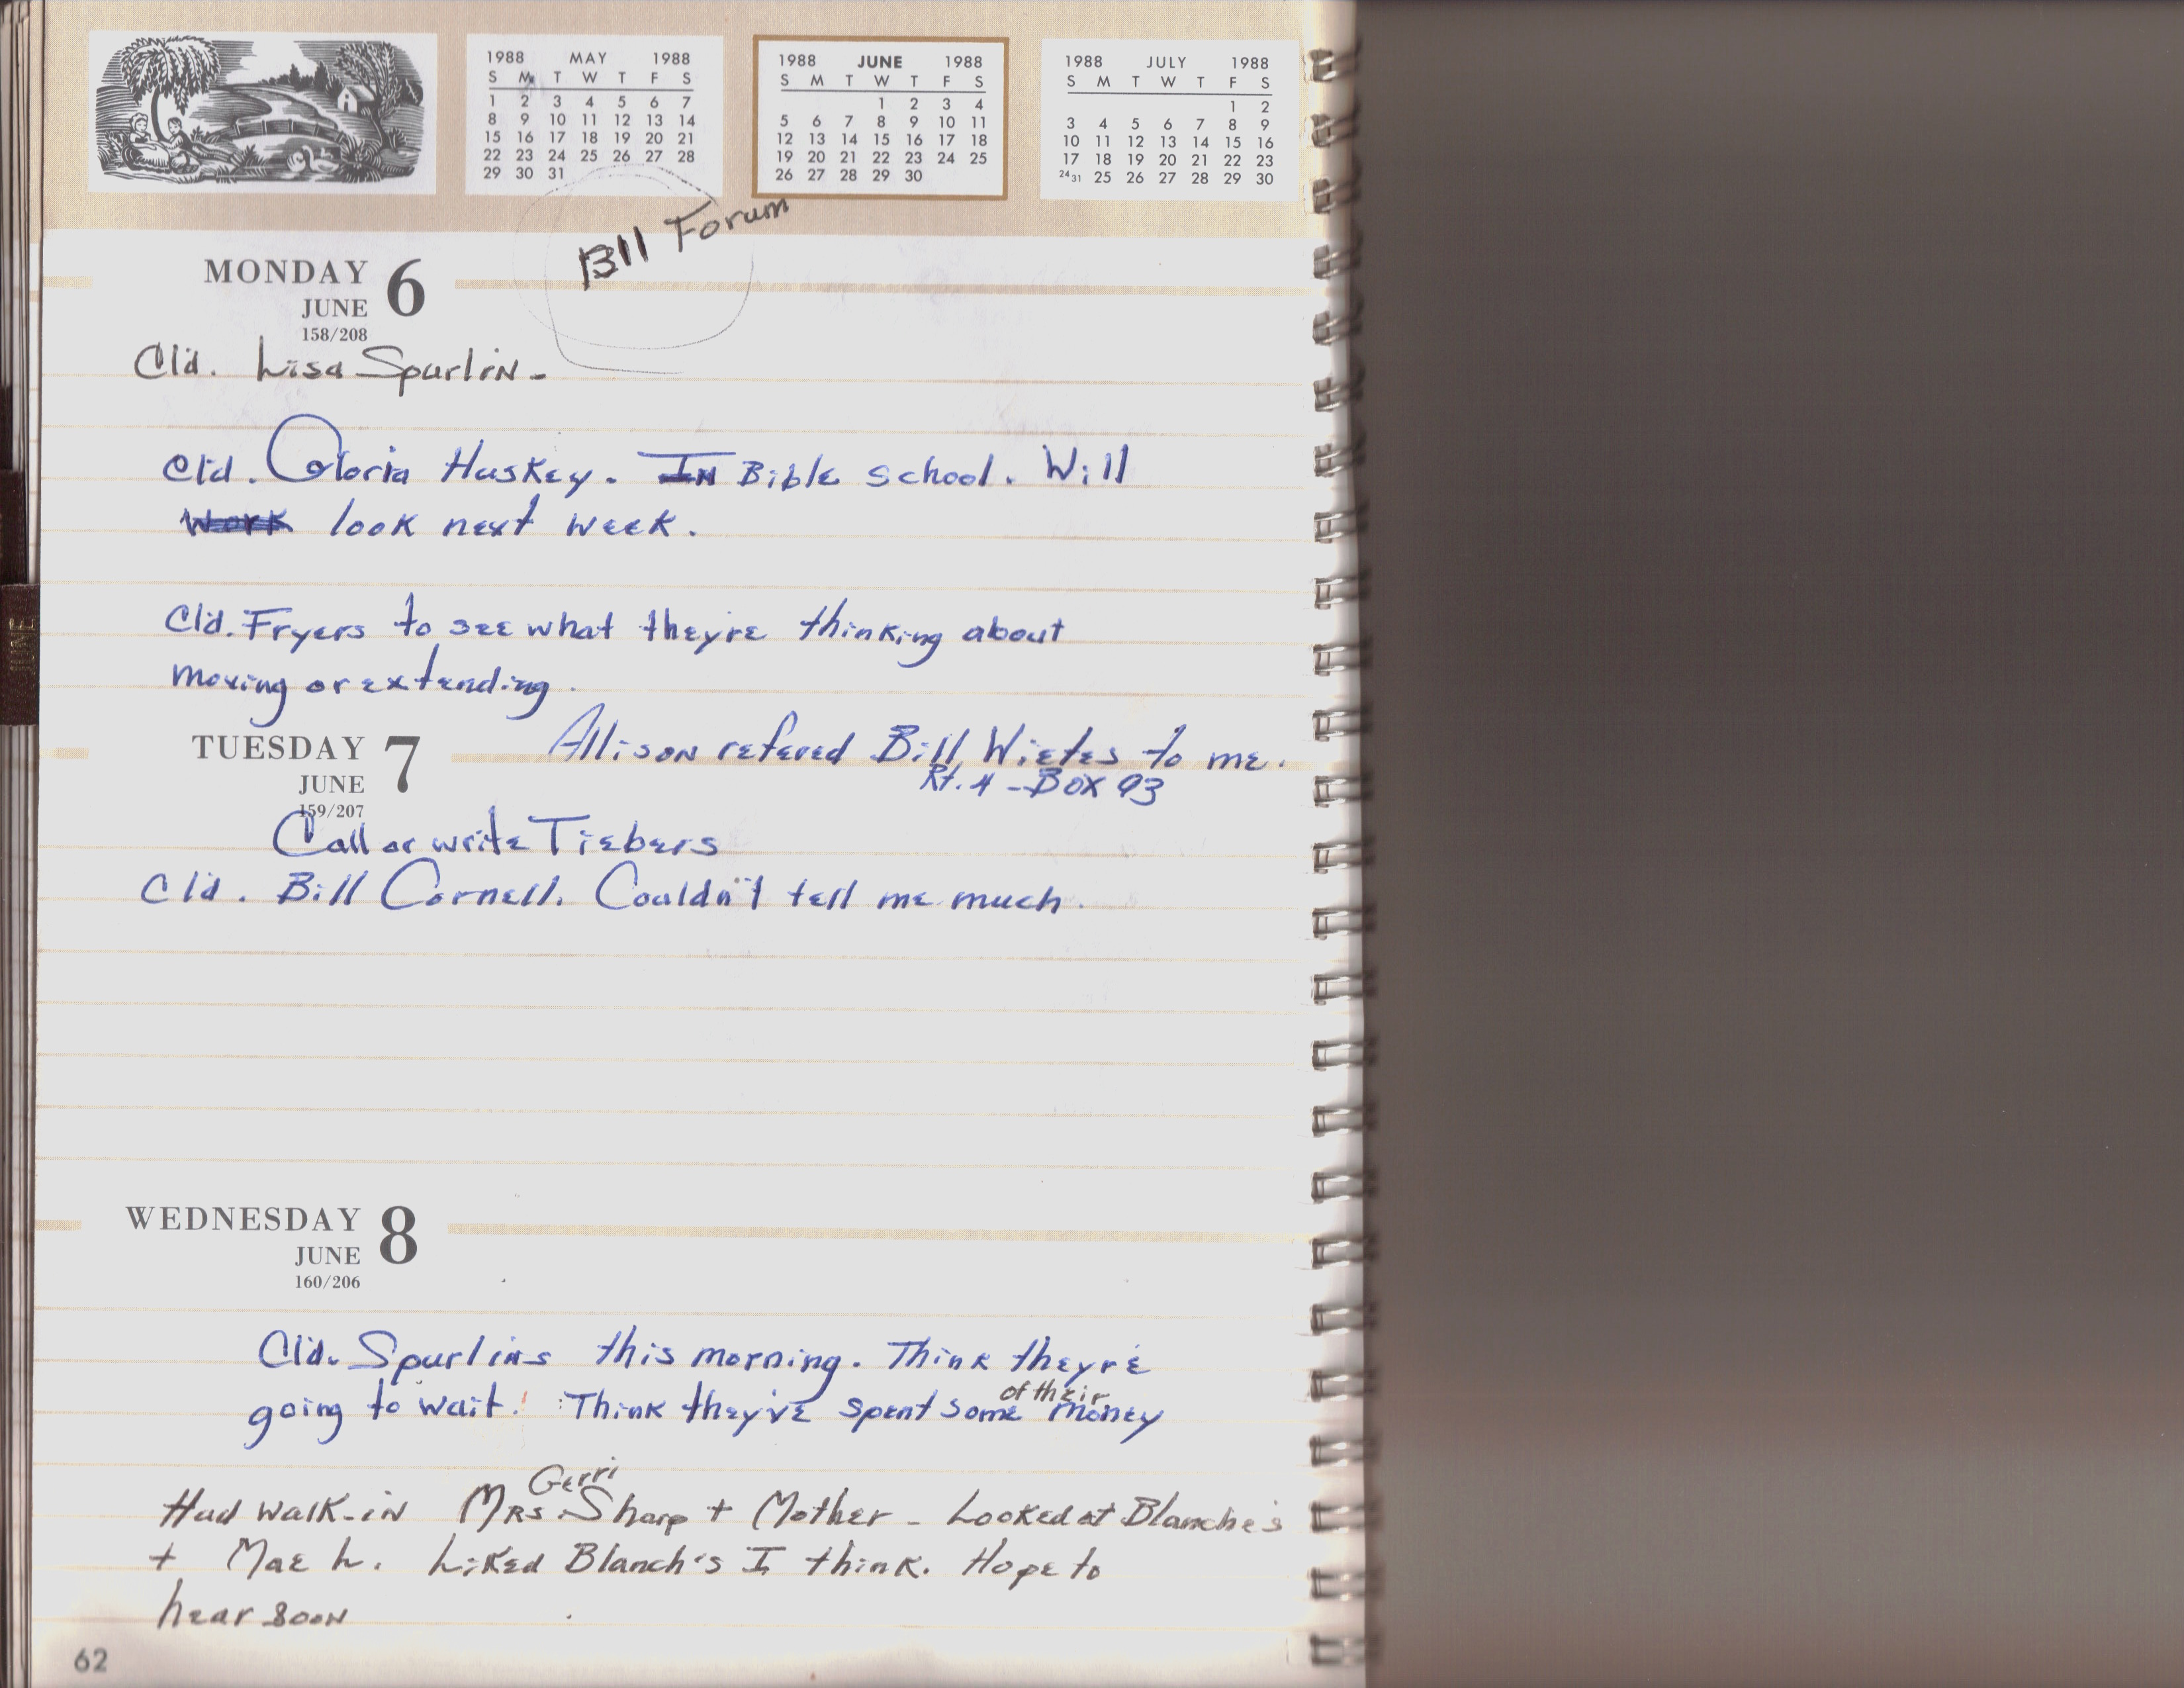 1988 MAY 1988
S M T W T F S
1 2 3 4 5 6 7
8 9 10 11 12 13 14
15 16 17 18 19 20 21
22 23 24 25 26 27 28
29 30 31
1988 JUNE 1988
S M T W T F S
1 2 3 4
5 6 7 8 9 10 11
12 13 14 15 16 17 18
19 20 21 22 23 24 25
26 27 28 29 30
1988 JULY 1988
S M T W T F S
1 2
3 4 5 6 7 8 9
10 11 12 13 14 15 16
17 18 19 20 21 22 23
24 31 25 26 27 28 29 30
Bill Forum
MONDAY 6
JUNE
158/208
Cld. Lisa Spurlin -
Cld. Gloria Huskey. In Bible school. Will
work look next week.
Cld. Fryers to see what theyre thinking about
moving or extending.
JUNE
TUESDAY 7
JUNE
159/207
Allison refered Bill Wietes to me.
Rt. 4 - Box 93
Call or write Tiebers
Cld. Bill Cornell. Couldn't tell me much.
WEDNESDAY 8
JUNE
160/206
Cld. Spurlins this morning. Think they're
going to wait. Think they've spent some of their money
Had walk-in Mrs Gerri Sharp + Mother - Looked at Blanche's
+ Mae L. Liked Blanch's I think. Hope to
hear soon
62